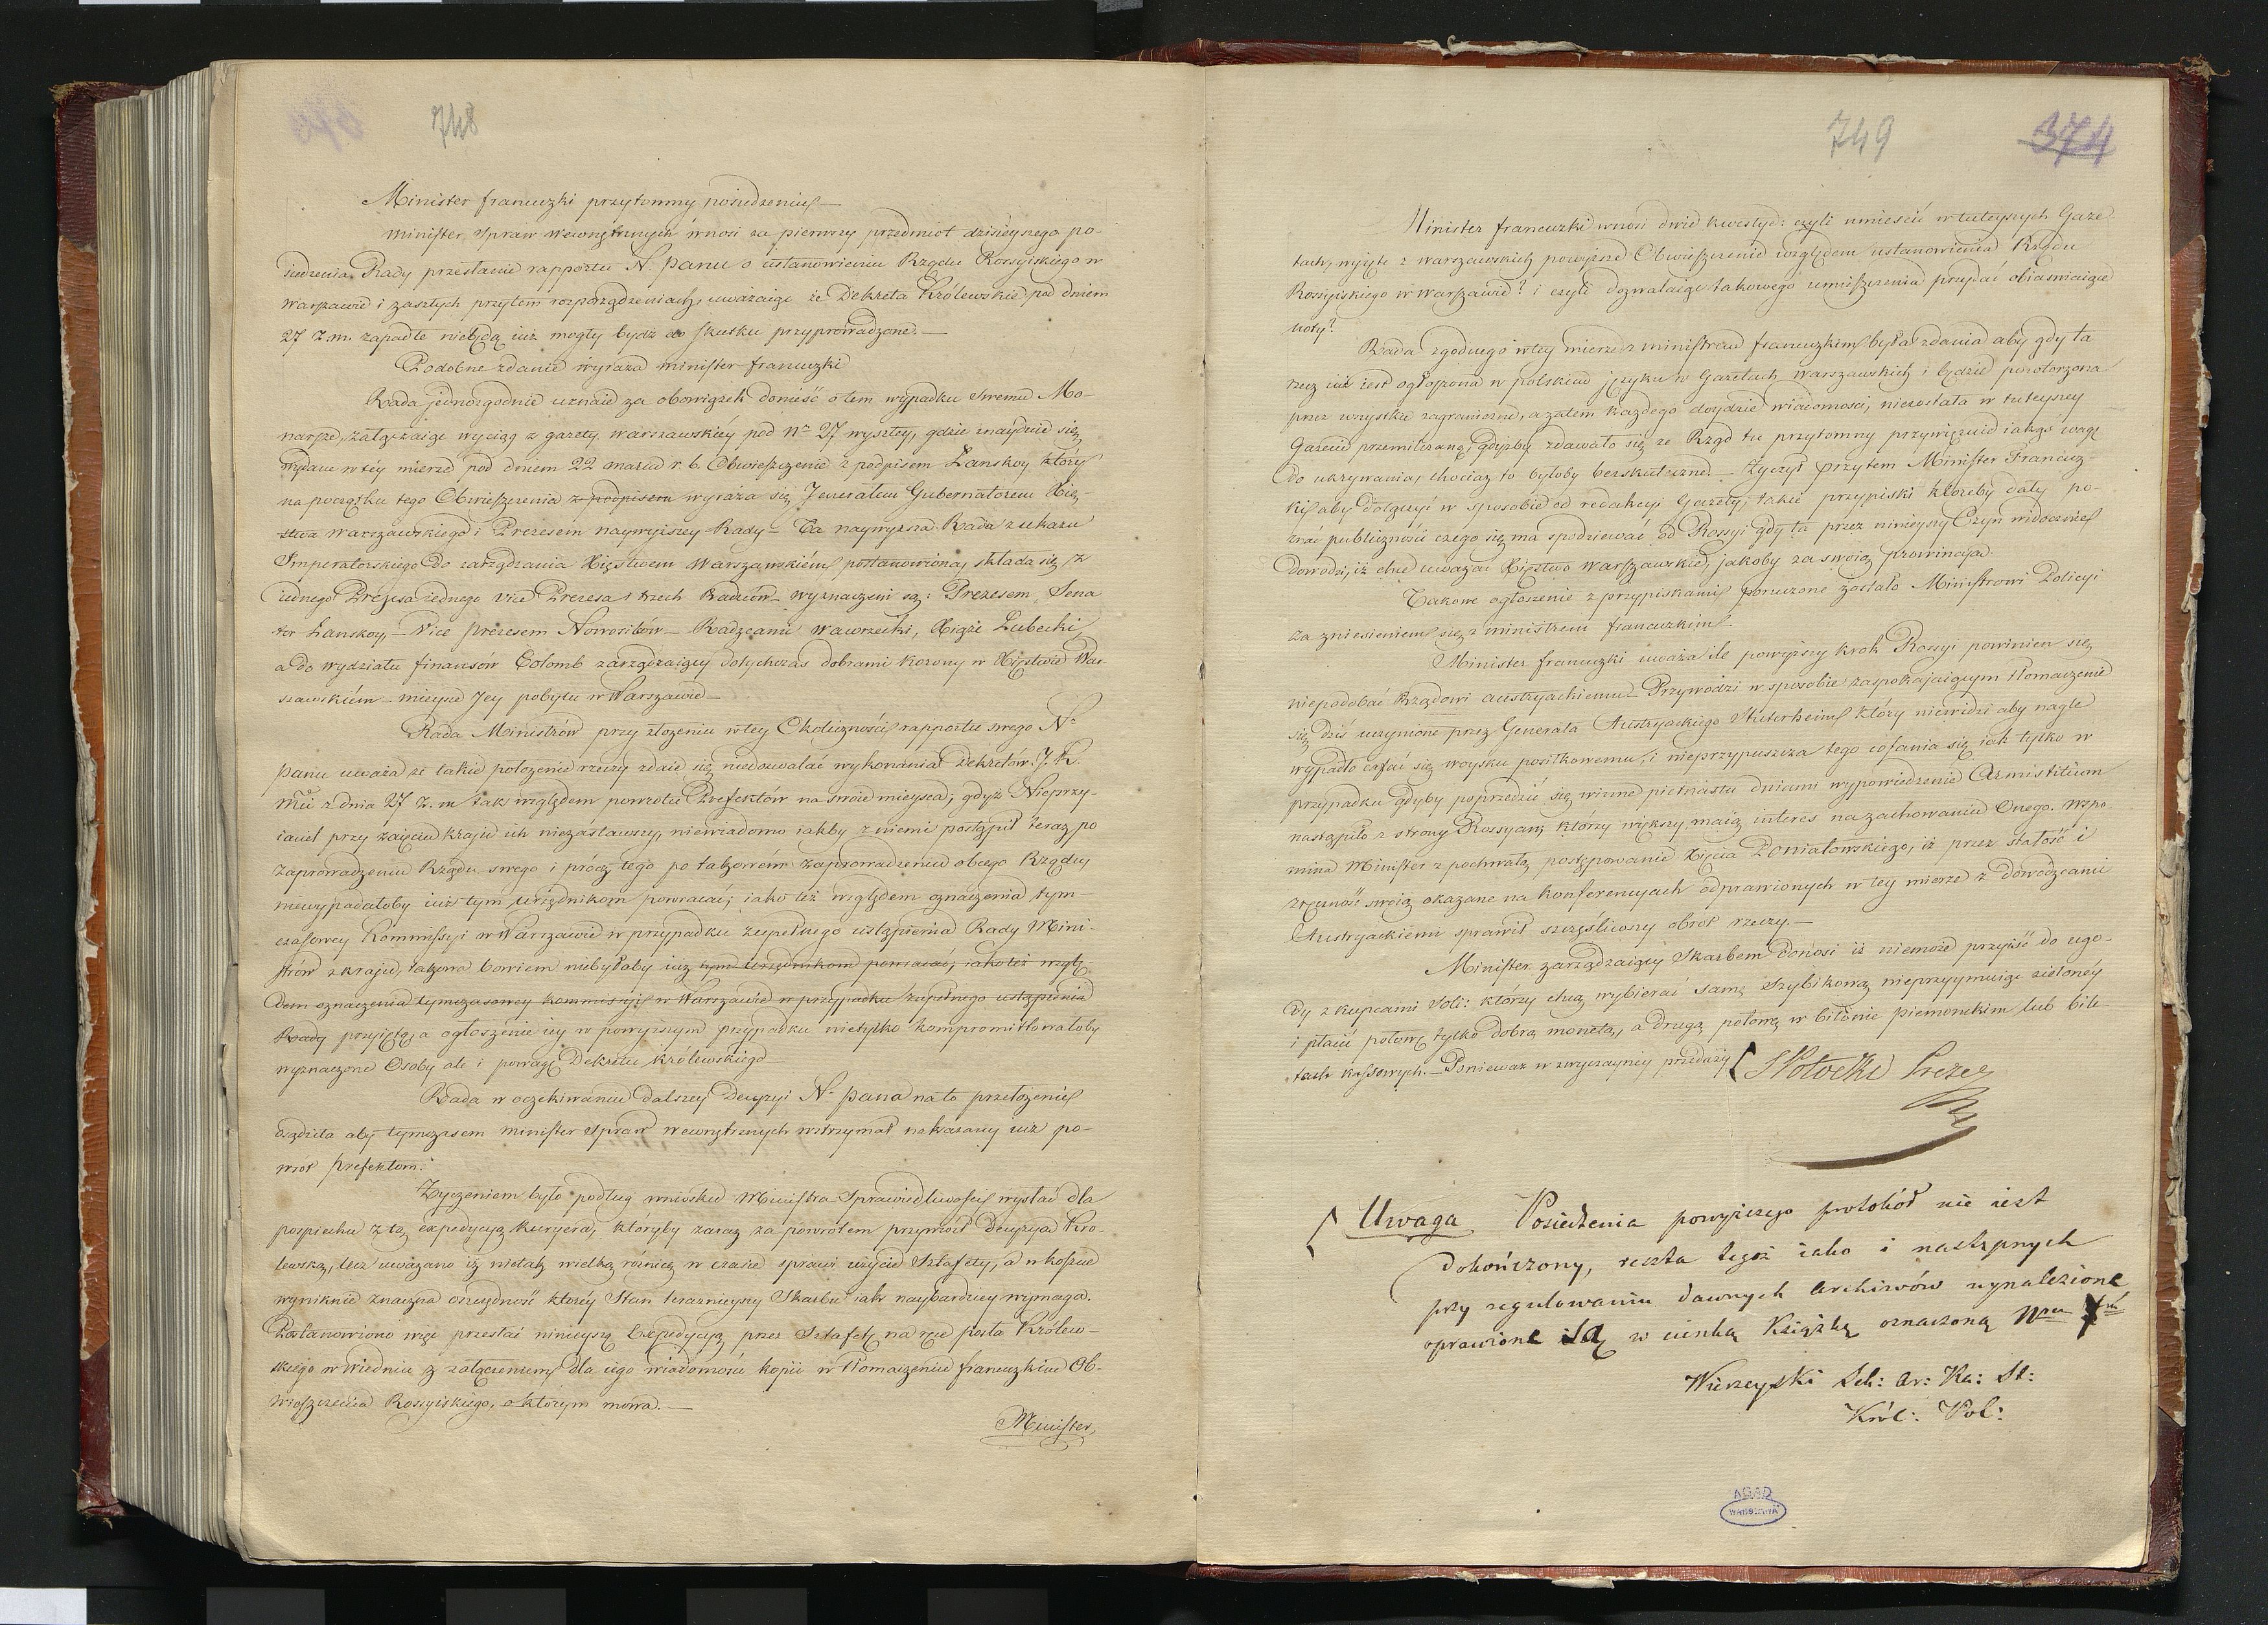 748
Minister francuzki przytomny posiedzeniu —
Minister Spraw Wewnętrznych wnosi za pierwszy przedmiot dzisieyszego po-
siedzenia Rady przesłanie rapportu N. Panu o ustanowieniu Rządu Rossyiskiego w
Warszawie i zaszłych przytem rozporządzeniach, uważaiąc że Dekreta Królewskie pod dniem
27 z. m. zapadłe niebędą iuż mogły bydź do skutku przyprowadzone. —
Podobne zdanie wyraża minister francuzki
Rada jednozgodnie uznaie za obowiązek donieść o tem wypadku swemu Mo-
narsze, załączaiąc wyciąg z gazety warszawskiéy pod Nr 27 wyszłey, gdzie znayduie się
wydane w tey mierze pod dniem 22 marca r. b. Obwieszczenie z podpisem Łanskoy, który
na początku tego Obwieszczenia z podpisem wyraża się Jenerałem Gubernatorem Xię-
stwa Warszawskiego i Prezesem naywyższey Rady — Ta naywyższa Rada z ukazu
Imperatorskiego do zarządzania Xięstwem Warszawskiém postanowiona, składa się z
iednego Prezesa iednego Vice Prezesa i trzech Radzców — wyznaczeni są: Prezesem, Sena
tor Łanskoy, — Vice Prezesem Nowosilców — Radzcami Wawrzecki, Xiąże Lubecki,
a do wydziału finansów Colomb zarządzaiący dotychczas dobrami korony w Xięstwie War-
szawskiém — mieysce Jey pobytu w Warszawie —
Rada Ministrów przy złożeniu w tey Okoliczności rapportu swego N.
Panu uważa że takie położenie rzeczy zdaie się niedozwalać wykonania Dekretów J. K.
Mci z dnia 27 z. m. tak względem powrotu Prefektów na swoie mieysca; gdyż Nieprzy-
iaciel przy zaięciu kraiu ich niezastawszy, niewiadomo iakby z niemi postąpił teraz po
zaprowadzeniu Rządu swego i prócz tego po takowém zaprowadzeniu obcego Rządu,
niewypadałoby iuż tym urzędnikom powracać; iako też względem oznaczenia tym-
czasowey Kommissyi w Warszawie w przypadku zupełnego ustąpienia Rady Mini-
strów z kraiu, takowa bowiem niebyłaby iuż tym urzędnikom powracać; iako też wzglę-
dem oznaczenia tymczasowey kommissyi w Warszawie w przypadku zupełnego ustąpienia
Rady przyiętą, a ogłoszenie iey w powyższym przypadku nietylko kompromitowałoby
wyznaczone Osoby ale i powagę Dekretu królewskiego —
Rada w oczekiwaniu dalszey Decyzyi N. Pana na to przełożenie
osądziła aby tymczasem minister Spraw Wewnętrznych wstrzymał nakazany iuż po-
wrót Prefektom.
Życzeniem było podług wniosku Ministra Sprawiedliwości wysłać dla
pospiechu z tą expedycyą Kuryera, któryby zaraz za powrotem przywiózł Decyzyą Kró-
lewską, lecz uważano iż nietak wielką różnicę w czasie sprawi użycie Sztafety, a w koszcie
wyniknie znaczna oszczędność któréy Stan teraznieyszy Skarbu iak naybardziey wymaga.
Postanowiono więc przesłać ninieyszą Expedycyą przez Sztafetę na ręce posła Królew-
skiego w Wiedniu z załączeniem dla iego wiadomości kopii w tłomaczeniu francuzkim Ob-
wieszczenia Rossyiskiego, o którym mowa. —
Minister,
749
374
Minister francuzki wnosi dwie kwestye: czyli umieścić w tuteyszych Gaze-
tach, wyięte z warszawskich powyższe Obwieszczenie względem ustanowienia Rządu
Rossyiskiego w Warszawie? i czyli dozwalaiąc takowego umieszczenia przydać obiaśniaiące
noty?
Rada zgodnego w tey mierze z ministrem francuzkim była zdania aby gdy ta
rzecz iuż iest ogłoszona w polskim języku w Gazetach warszawskich i będzie powtorzona
przez wszystkie zagraniczne, a zatem każdego doydzie wiadomości, niezostała w tuteyszey
Gazecie przemilczaną, gdyżby zdawało się że Rząd tu przytomny przywięzuie iakąś wagę
do ukrywania, chociaż to byłoby bezskuteczne. — Życzył przytem Minister Francuz-
ki aby dołączyć w sposobie od redakcyi Gazety, takie przypiski któreby dały po-
znać publiczności czego się ma spodziewać od Rossyi gdy ta przez ninieyszy Czyn widocznie
dowodzi, iż chce uważać Xięstwo Warszawskie, jakoby za swoią prowincyą.
Takowe ogłoszenie z przypiskami poruczone zostało Ministrowi Policyi
za zniesieniem się z ministrem francuzkim.
Minister francuzki uważa ile powyższy krok Rossyi powinien się
niepodobać Rządowi austryackiemu — Przywodzi w sposobie zaspokajaiącym tłomaczenie
się dziś uczynione przez Generała Austryackiego Stuterheim który niewidzi aby nagle
wypadło cofać się woysku posiłkowemu, i nieprzypuszcza tego cofania się iak tylko w
przypadku gdyby poprzedzić się winne piętnastu dniami wypowiedzenie Armistitium
nastąpiło z strony Rossyan, którzy większy maią interes na zachowaniu Onego. Wspo-
mina Minister z pochwałą postępowanie Xięcia Poniatowskiego, iż przez stałość i
zręczność swoią okazane na konferencyach odprawionych w tey mierze z dowódzcami
Austryackiemi sprawił szczęśliwszy obrót rzeczy. —
Minister zarządzaiący Skarbem donosi iż niemoże przyiść do ugo-
dy z kupcami Soli: którzy chcą wybierać samę Szybikową nieprzyymuiąc zieloney
i płacić połowę tylko dobrą monetą, a drugą połowę w bilonie piemonckim lub bile-
tach kassowych. — Ponieważ w zwyczayney przedaży
S Potocki Prezes
Uwaga Posiedzenia powyższego protokół nie iest
dokończony, reszta tegoż iako i następnych
przy regulowaniu dawnych archiwów wynalezione
oprawione są w cienką Książkę oznaczoną Nrem 7m
Wierzeyski Sek: Ar: Ra: St:
Król: Pol:
AGAD
WARSZAWA